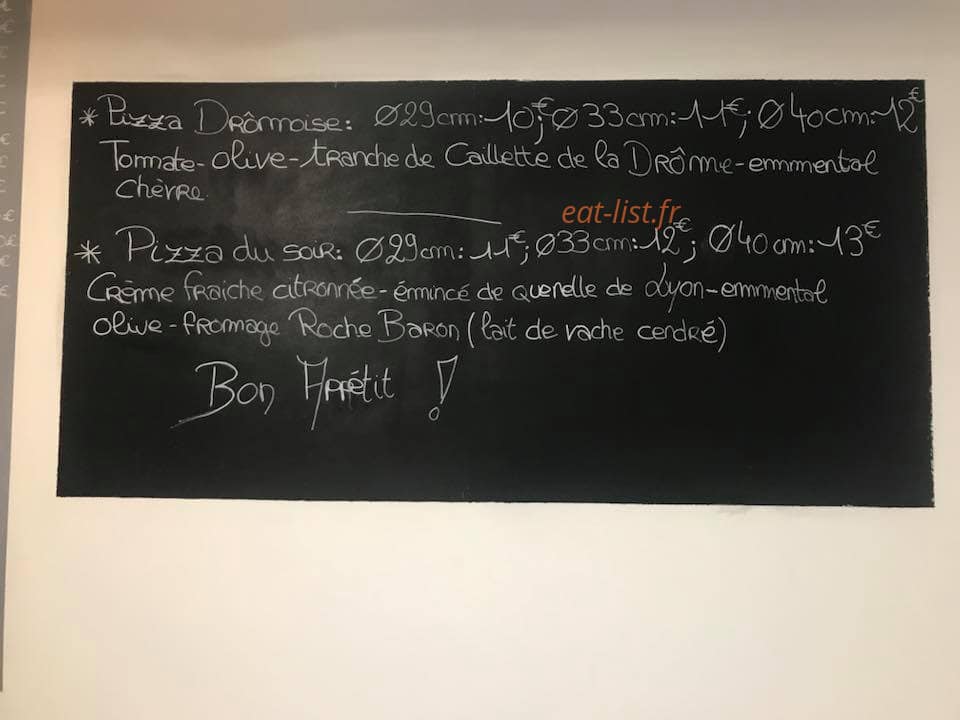 * Pizza Drômoise: Ø29cm:10€; Ø33cm:11€; Ø40cm:12€
Tomate-olive-tranche de Caillette de la Drôme-emmental
chèvre
eat-list.fr
* Pizza du soir: Ø29cm:11€; Ø33cm:12€; Ø40cm:13€
Crème fraiche citronnée-émincé de quenelle de Lyon-emmental
olive-fromage Roche Baron (lait de vache cendré)
Bon Appétit !